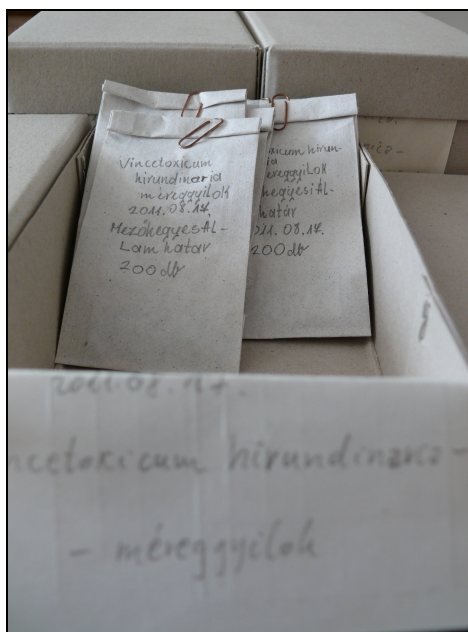 Vincetoxicum
hirundinaria
méreggyilok
2011.08.17.
Mezőhegyes Ál-
Lami határ
200 db
hirun-
ia
éreggyilok
hegyesi Ál-
határ
011.08.17.
200 db
2011.08.17.
ncetoxicum hirundinaria-
- méreggyilok